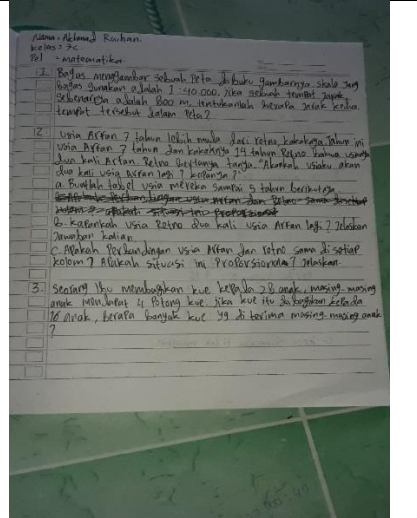 Nama = Akhmad Raihan
kelas = 7c
Pel = matematika
1. Bagas menggambar sebuah Peta dibuku gambarnya skala yang
bagas gunakan adalah 1 : 40.000, jika sebuah tempat Jarak
Sebenarnya adalah 800 m, tentukanlah berapa Jarak kedua
tempat tersebut dalam Peta?
2. Usia Arfan 7 tahun lebih muda dari retno, kakaknya. Tahun ini
usia Arfan 7 tahun dan kakaknya 14 tahun Retno bahwa usianya
dua kali Arfan. Retno bertanya tanya, "Akankah usiaku akan
dua kali usia Arfan lagi? kapankah?"
a. Buatlah tabel usia mereka sampai 5 tahun berikutnya
b. Kapankah usia Retno dua kali usia Arfan lagi? Jelaskan
Jawaban kalian
c. Apakah Perbandingan usia Arfan dan retno sama di setiap
kolom? Apakah situasi ini Proporsional? Jelaskan.
3. Seorang Ibu membagikan kue kepada 28 anak, masing-masing
anak mendapat 4 Potong kue, jika kue itu dibagikan kepada
16 anak, berapa banyak kue yg di terima masing-masing anak
?